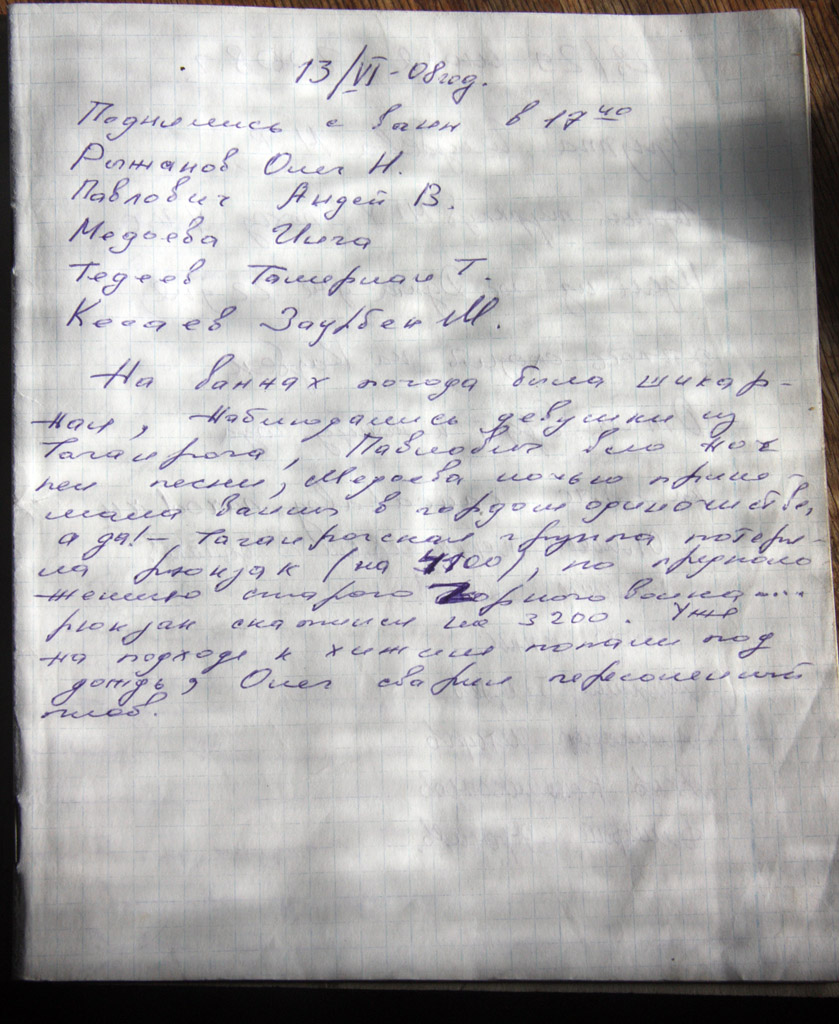 13/VI-08 год.
Поднялись с ванн в 17 40
Рыжанов Олег Н.
Павлович Андей В.
Медоева Инга
Тедеев Тамерлан Т.
Косаев Заурбек М.
На ваннах погода была шикар-
ная, наблюдались девушки из
Таганрога, Павлович всю ночь
пел песни, Медоева ночью прини-
мала ванны в гордом одиночистве,
а да! - Таганрогская группа потеря-
ла рюкзак (на 4100), по предполо
жению старого горного волка....
рюкзак скатился на 3200. Уже
на подходе к хижине попали под
дождь, Олег сварил пересоленный
плов.